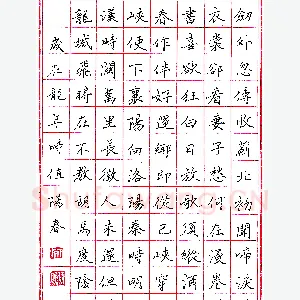 劍外忽傳收薊北初聞啼淚
衣裳卻看妻子愁何在漫卷
書喜欲狂白日放歌須縱酒
春作伴好還鄉即從巴峽穿
峽便下襄陽向洛陽秦時明
漢時關萬里長征人未還但
龍城飛將在不教胡馬度陰
歲在龍年時值陽春